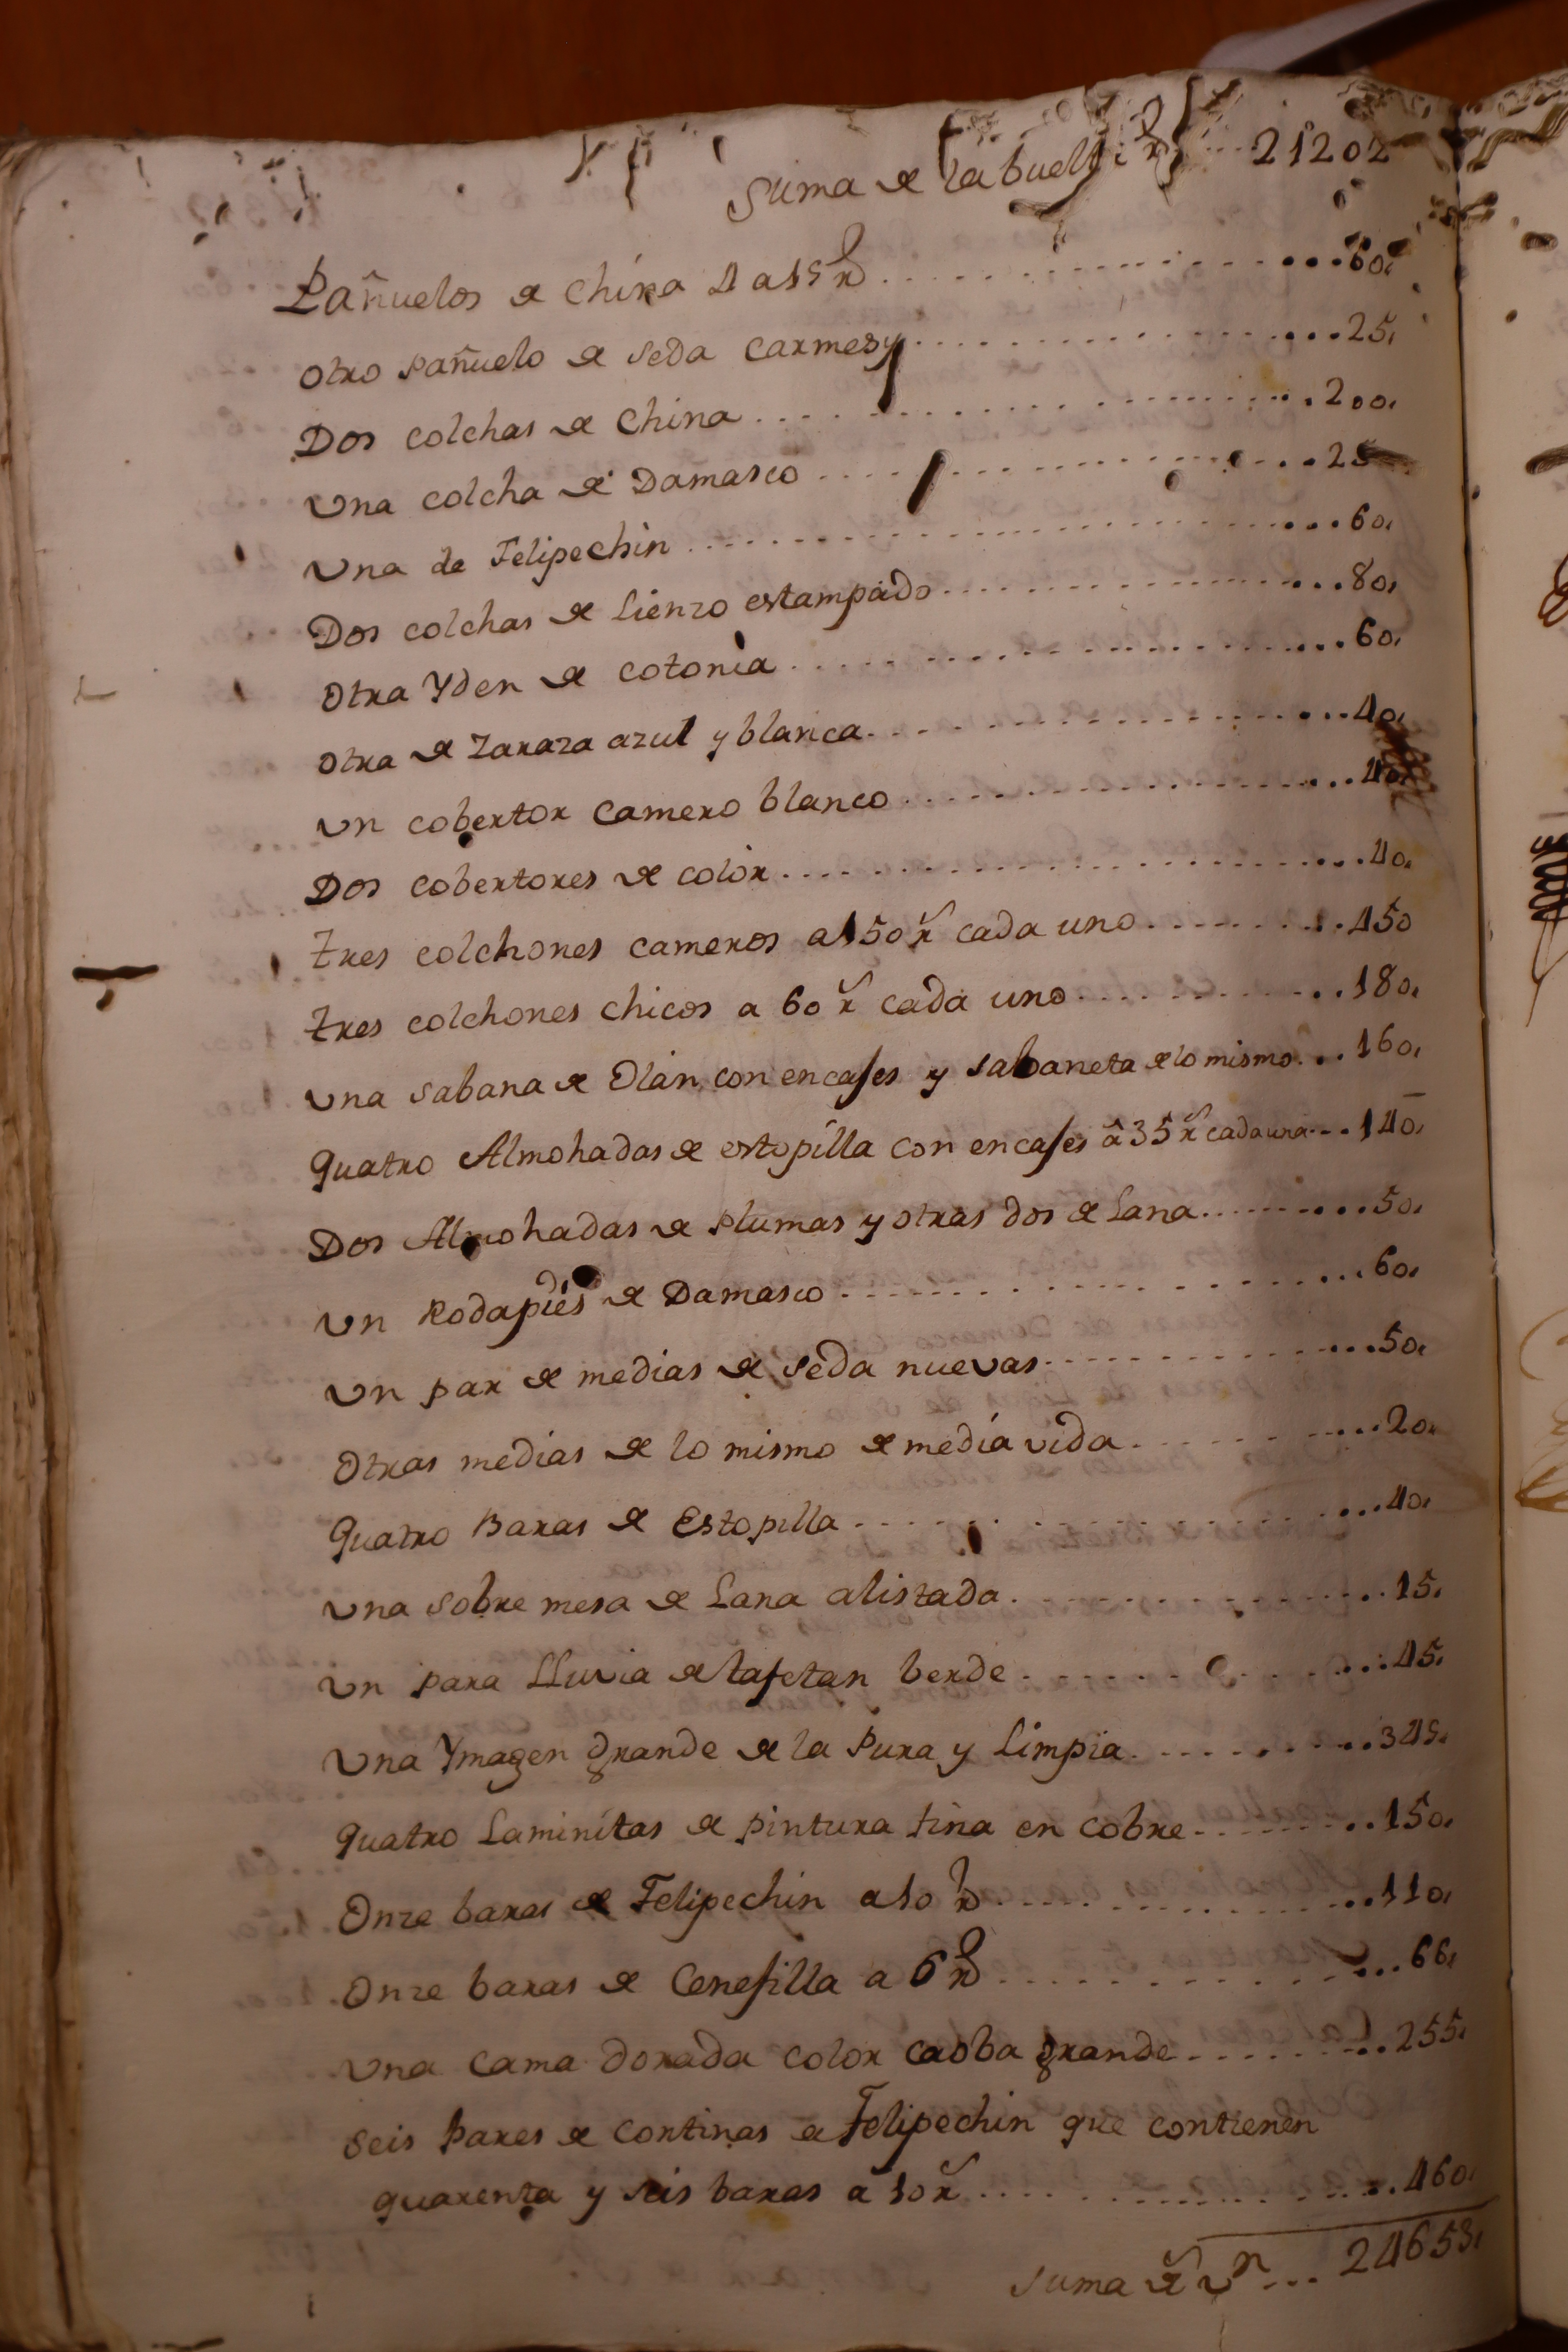 Suma de la buelta rs ... 21202
Pañuelos de China 4 a 15 rs ... 60
Otro Pañuelo de Seda Carmesy ... 25
Dos colchas de China ... 200
Una colcha de Damasco ... 25
Una de Felipechin ... 60
Dos colchas de Lienzo estampado ... 80
Otra Yden de cotonia ... 60
Otra de Zaraza azul y blanca ... 40
Un cobertor Camero blanco ... 40
Dos cobertores de color ... 40
Tres colchones cameros a 150 rs cada uno ... 450
Tres colchones chicos a 60 rs cada uno ... 180
Una Sabana de Olan con encajes y Sabaneta de lo mismo ... 160
Quatro Almohadas de estopilla con encajes â 35 rs cada una ... 140
Dos Almohadas de Plumas y otras dos de Lana ... 50
Un Rodapies de Damasco ... 60
Un par de medias de Seda nuevas ... 50
Otras medias de lo mismo de media vida ... 20
Quatro Baras de Estopilla ... 40
Una Sobre mesa de Lana alistada ... 15
Un para LLuvia de tafetan berde ... 45
Una Ymagen grande de la Pura y Limpia ... 345
Quatro Laminitas de pintura fina en cobre ... 150
Onze baras de Felipechin a 10 rs ... 110
Onze baras de Cenefilla a 6 rs ... 66
Una Cama dorada color caoba grande ... 255
Seis Pares de Cortinas de Felipechin que contienen
quarenta y seis baras a 10 rs ... 460
Suma rs vn ... 24653